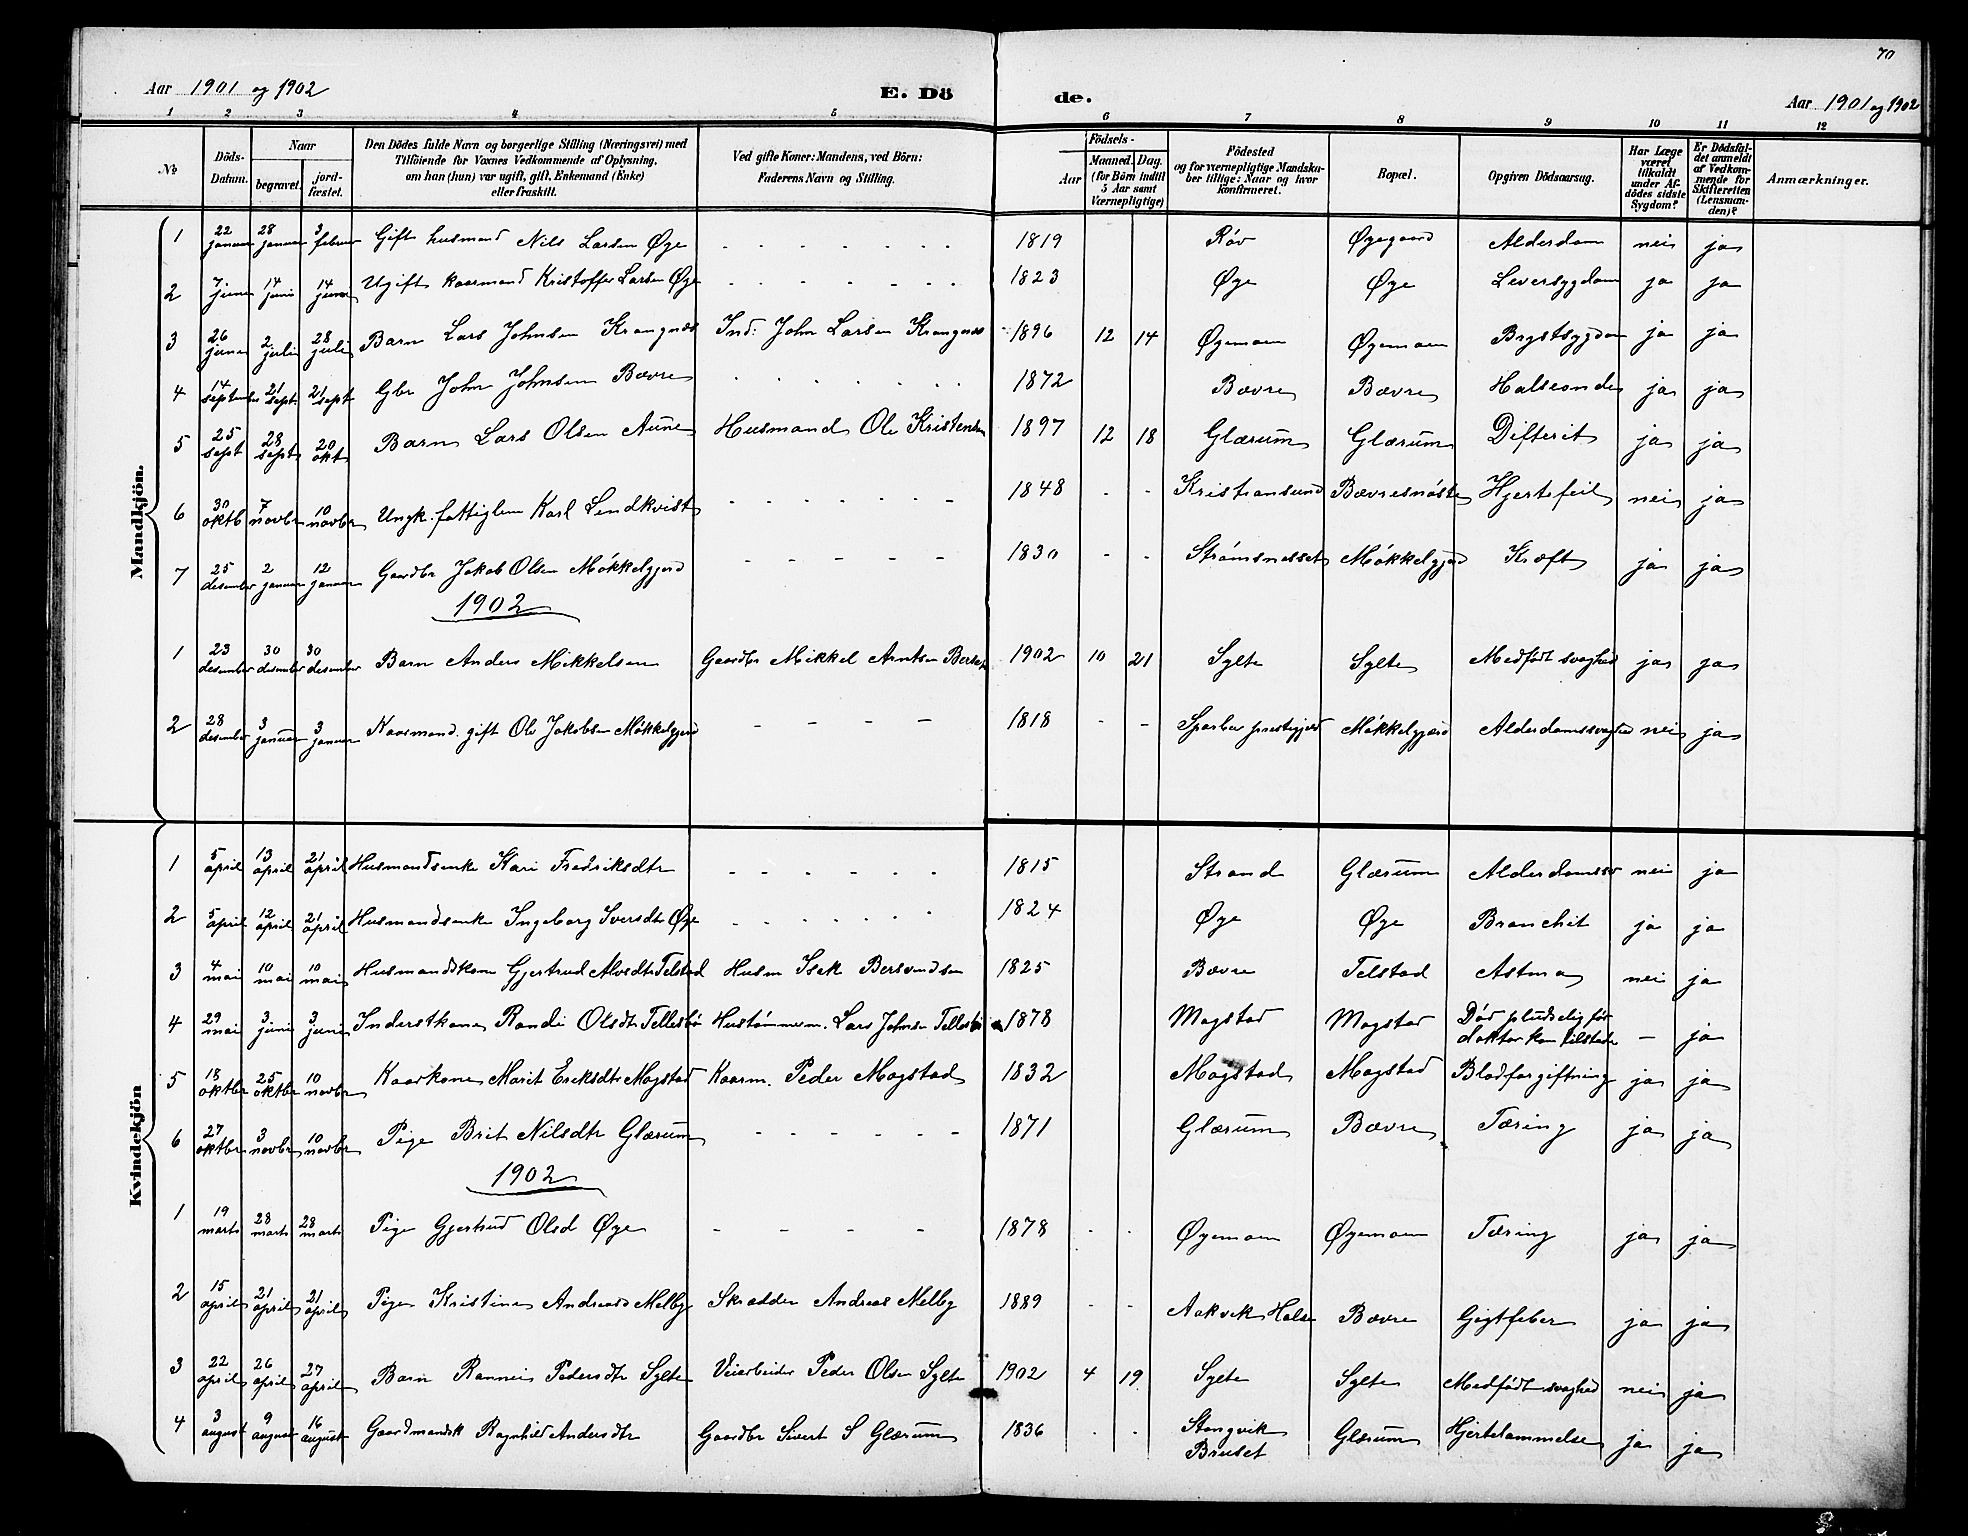 70
Aar 1901 og 1902 E. Dö de. Aar 1901 og 1902
1 2 3 4 5 6 7 8 9 10 11 12
No. Döds-Datum. Naar begravet. jord-fæstet. Den Dödes fulde Navn og borgerlige Stilling (Næringsvei) med Tilföiende for Voxnes Vedkommende af Oplysning, om han (hun) var ugift, gift, Enkemand (Enke) eller fraskilt. Ved gifte Koner: Mandens, ved Börn: Faderens Navn og Stilling. Födsels- Aar Maaned. Dag. (for Börn indtil 5 Aar samt Værnepligtige) Födested og for værnepligtige Mandskaber tillige: Naar og hvor konfirmeret. Bopæl. Opgiven Dödsaarsag. Har Læge været tilkaldt under Afdödes sidste Sygdom? Er Dödsfaldet anmeldt af Vedkommende for Skifteretten (Lensmanden)? Anmærkninger.
Mandkjön.
1 22 januar 28 januar 3 februar Gift husmand Nils Larsen Øye - - - - - - - 1819 Røv Øyegaard Alderdom nei ja
2 7 juni 14 juni 14 juni Ugift kaarmand Kristoffer Larsen Øye - - - - - - - 1823 Øye Øye Leversygdom ja ja
3 26 juni 2 juli 28 juli Barn Lars Johnsen Krangnæs Ind: John Larsen Krangnæs 1896 12 14 Øyemoen Øyemoen Brystsygdom ja ja
4 14 september 21 sept 21 sept Gbr John Johnsen Bævre - - - - - - - 1872 Bævre Bævre Halsonde ja ja
5 25 sept 28 sept 20 okt Barn Lars Olsen Aune Husmand Ole Kristensen 1897 12 18 Glærum Glærum Difterit ja ja
6 30 oktb 7 novbr 10 novbr Ungk. fattiglem Karl Lindkvist - - - - - - - 1848 - - Kristiansund Bævresnøste Hjertefeil nei ja
7 25 desember 2 januar 12 januar Gaardbr Jakob Olsen Møkkelgjerd - - - - - 1830 - - Strømsnesset Møkkelgjerd Kræft ja ja
1902
1 23 desember 30 desember 30 desember Barn Anders Mikkelsen Gaardbr Mikkel Arntsen 1902 10 21 Sylte Sylte Medfødt svaghed ja ja
2 28 desember 3 januar 3 januar Kaarmand. gift Ole Jakobsen Møkkelgjerd - - - - 1818 - - Sparbu prestegjeld Møkkelgjærd Alderdomssvaghed nei ja
Kvindekjön
1 5 april 13 april 21 april Husmandsenke Kari Fredriksdtr - - - - - - 1815 Strand Glærum Alderdomssv nei ja
2 5 april 12 april 21 april Husmandsenke Ingeborg Iversdtr Øye - - - - - - 1824 Øye Øye Bronchit ja ja
3 4 mai 10 mai 10 mai Husmandskone Gjertrud Alvsdtr Telstad Husm Isak Bersvendsen 1825 Bævre Telstad Astma nei ja
4 29 mai 3 juni 3 juni Inderstkone Randi Olsdtr Tellesbø Hustømmerm. Lars Johnsen Tellesbø 1878 Mogstad Mogstad Død pludselig før doktor kom tilstede - ja
5 18 oktbr 25 oktbr 10 novbr Kaarkone Marit Eriksdtr Mogstad Kaarm. Peder Mogstad 1832 Mogstad Mogstad Blodforgiftning ja ja
6 27 oktbr 3 novbr 10 novbr Pige Brit Nilsdtr Glærum - - - - - - 1871 Glærum Bævre Tæring ja ja
1902
1 19 marts 28 marts 28 marts Pige Gjertrud Olsd Øye - - - - 1878 - - Øyemoen Øyemoen Tæring ja ja
2 15 april 21 april 21 april Pige Kristine Andreasd Melby Skrædder Andreas Melby 1889 - - Aakvik Halse Bævre Gigtfeber ja ja
3 22 april 26 april 27 april Barn Rannei Pedersdtr Sylte Veiarbeider Peder Olsen Sylte 1902 4 19 Sylte Sylte Medfødt svaghed nei ja
4 3 august 9 august 16 august Gaardmandsk Ragnhild Andersdtr Gaardbr Sivert S Glærum 1836 - - Stangvik Bruset Glærum Hjertelammelse ja ja